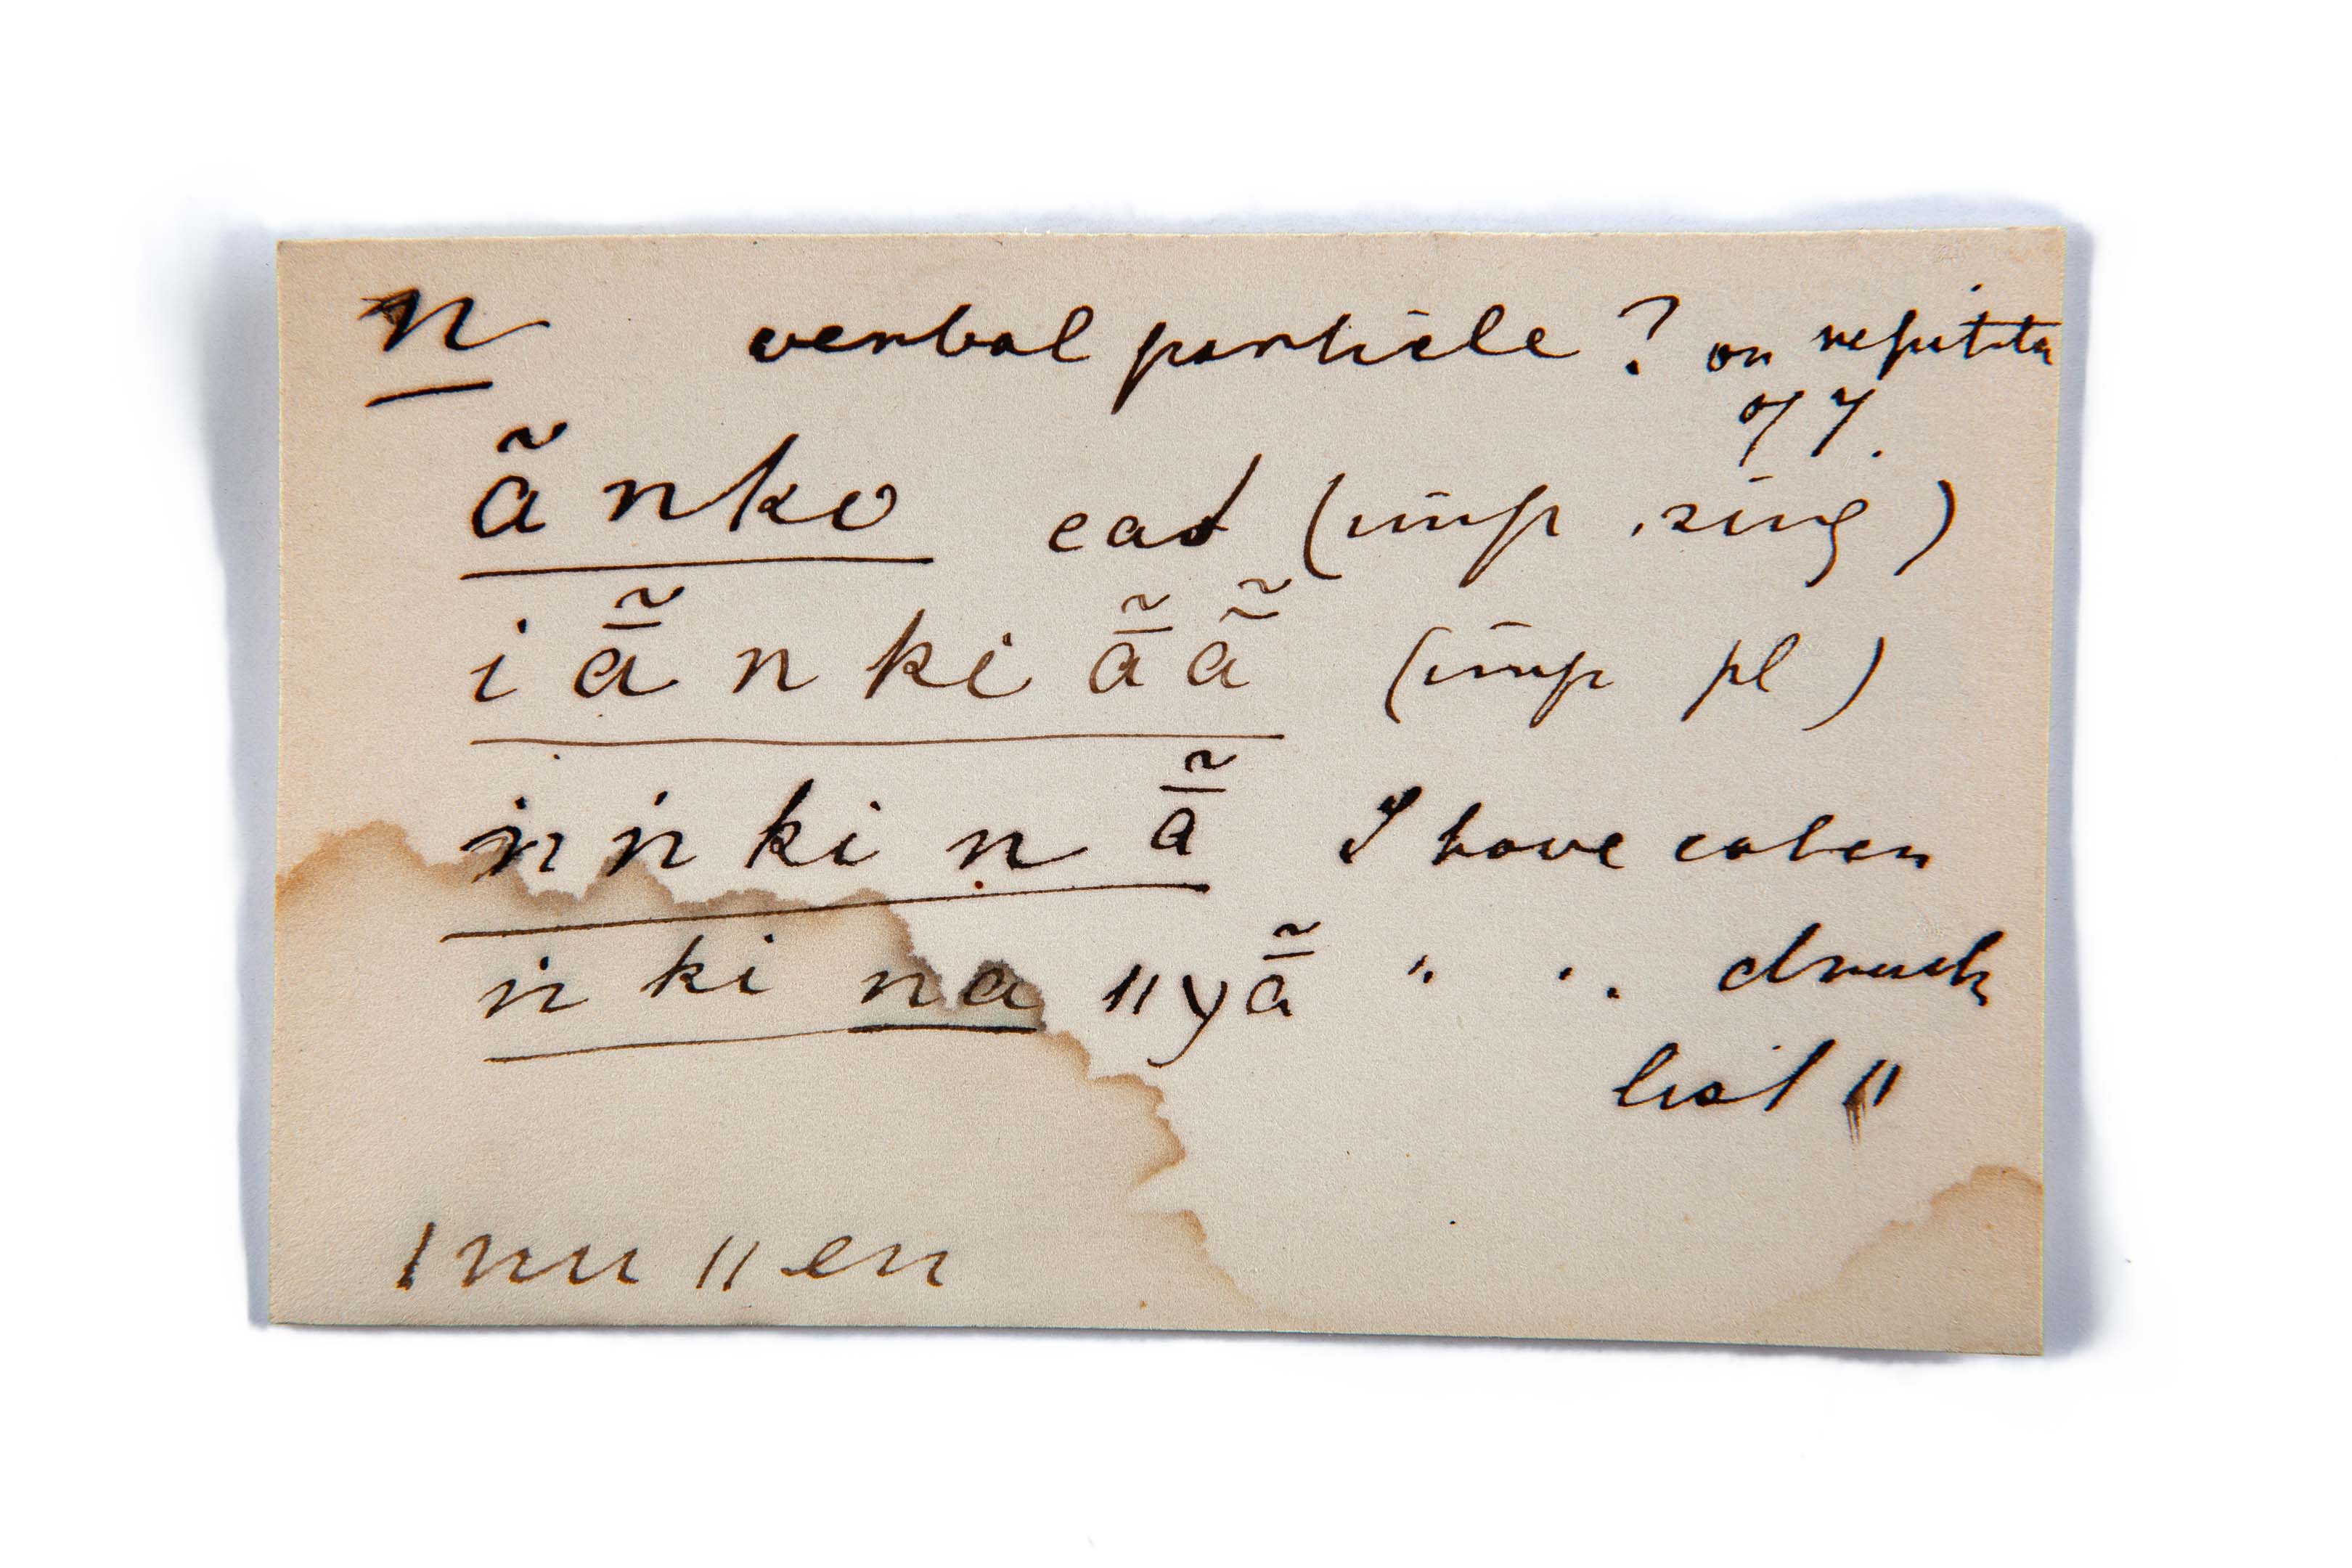 n verbal particle ? or repitita
of 7.
ãnko eat (imp. sing)
i ā̃ n ki ā̃ ã̃ (imp pl)
ṅ ṅ ki n ā̃ I have eaten
ṅ ki na ǁyā̃ " " drunk
list ǁ
ǀnu ǁen